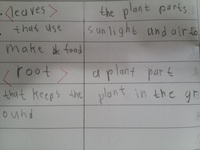 <leaves> the plant parts
that use sunlight and air to
make food
<root> a plant part
that keeps the plant in the gr
ound